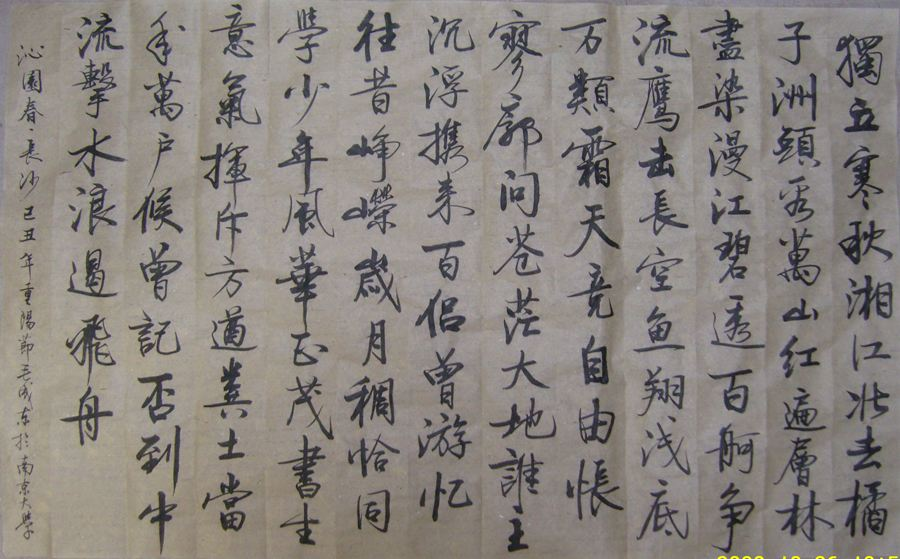 獨立寒秋湘江北去橘
子洲頭看萬山红遍層林
盡染漫江碧透百舸争
流鹰击長空鱼翔浅底
万類霜天竞自由悵
寥廓问苍茫大地誰主
沉浮携来百侣曾游忆
往昔峥嶸歲月稠恰同
學少年風華正茂書生
意氣揮斥方遒糞土當
年萬户侯曾記否到中
流擊水浪遏飛舟
沁園春·長沙 己丑年重陽節王成东於南京大學